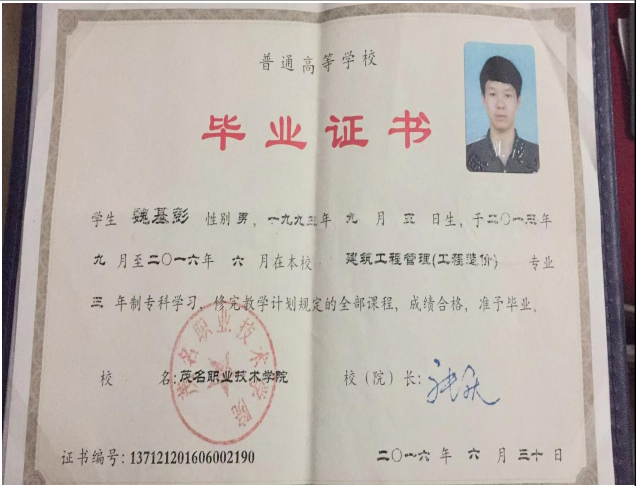 普通高等学校
毕业证书
学生 魏基彭 性别男，一九九三年 九 月 三 日生，于二〇一三年
九 月至二〇一六年 六 月在本校 建筑工程管理(工程造价) 专业
三 年制专科学习，修完教学计划规定的全部课程，成绩合格，准予毕业。
校 名：茂名职业技术学院 校（院）长：
茂名职业技术学院
证书编号：137121201606002190 二〇一六年 六 月 三十 日